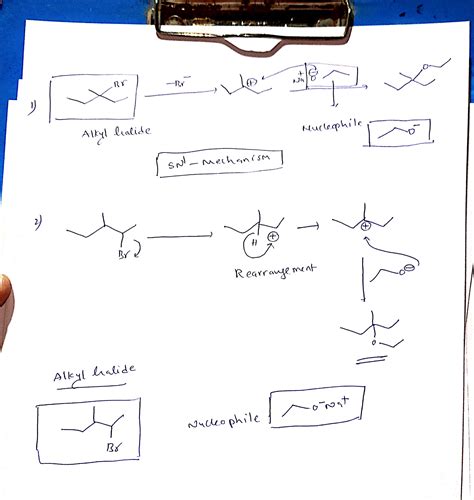 1) Br -Br⁻ ⊕ Na⁺ O⊖ O
Alkyl halide Nucleophile O⁻
SN¹-Mechanism
2) Br H ⊕ ⊕
Rearrangement O⊖
O
Alkyl halide
Br Nucleophile O⁻Na⁺